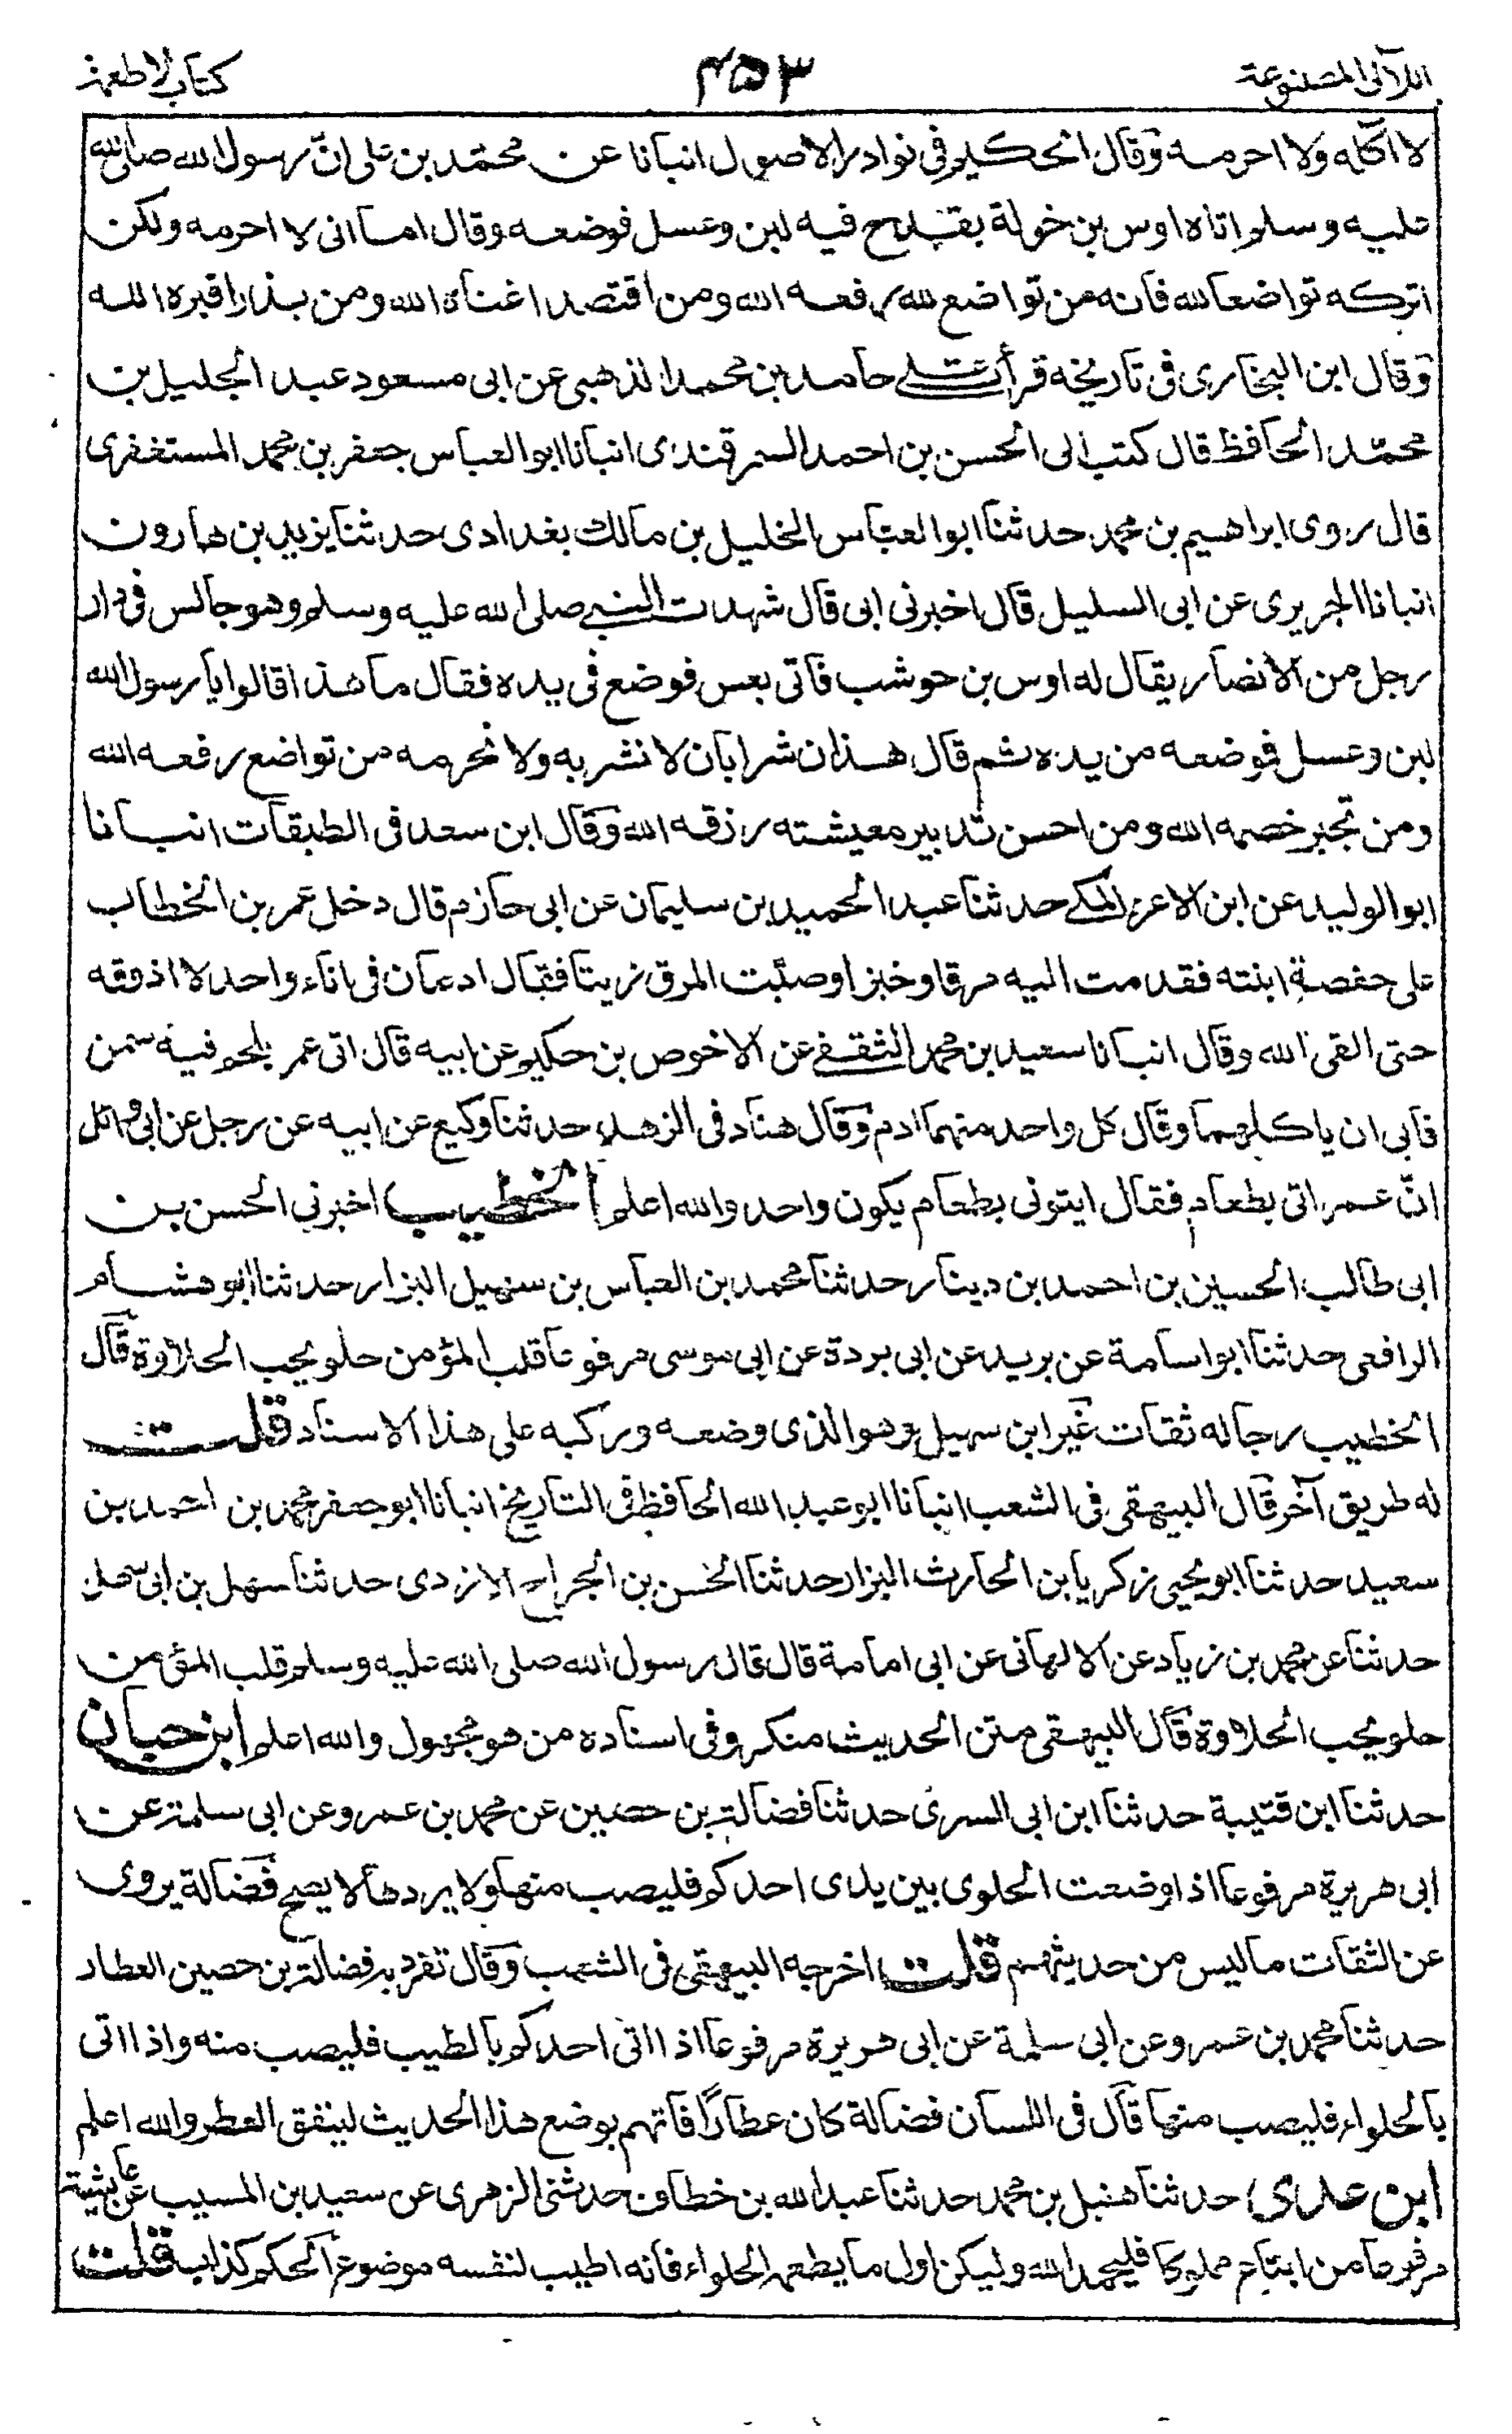 اللآلى المصنوعة
٤٥٣
كتاب الاطعمة
لا آكله ولا احرمه وقال الحكيم فى نوادر الاصول انبانا عن محمد بن على ان رسول الله صلى الله
عليه وسلم اتاه اوس بن خولة بقدح فيه لبن وعسل فوضعه وقال اما انى لا احرمه ولكن
اتركه تواضعا لله فانه من تواضع لله رفعه الله ومن اقتصد اغناه الله ومن بذر افقره الله
وقال ابن النجارى فى تاريخه قرأت على حامد بن محمد الذهبى عن ابى مسعود عبد الجليل بن
محمد الحافظ قال كتب الى الحسن بن احمد السمرقندى انبانا ابو العباس جعفر بن محمد المستغفرى
قال روى ابراهيم بن محمد حدثنا ابو العباس الخليل بن مالك بغدادى حدثنا يزيد بن هارون
انبانا الجريرى عن ابى السليل قال اخبرنى ابى قال شهدت النبى صلى الله عليه وسلم وهو جالس فى دار
رجل من الانصار يقال له اوس بن حوشب فاتى بعس فوضع فى يده فقال ما هذا قالوا يا رسول الله
لبن وعسل فوضعه من يده ثم قال هذان شرابان لا نشربه ولا نحرمه من تواضع رفعه الله
ومن تجبر خصمه الله ومن احسن تدبير معيشته رزقه الله وقال ابن سعد فى الطبقات انبانا
ابو الوليد عن ابن الاعز المكى حدثنا عبد الحميد بن سليمان عن ابى حازم قال دخل عمر بن الخطاب
على حفصة ابنته فقدمت اليه مرقا وخبزا وصبت المرق زيتا فقال ادمان فى اناء واحد لا اذوقه
حتى القى الله وقال انبانا سعيد بن محمد الثقفى عن الاخوص بن حكيم عن ابيه قال اتى عمر بلحم فيه سمن
فابى ان ياكلهما وقال كل واحد منهما ادم وقال هناد فى الزهد حدثنا وكيع عن ابيه عن رجل عن ابى وائل
ان عمر اتى بطعام فقال ايتونى بطعام يكون واحد والله اعلم (الخطيب) اخبرنى الحسن بن
ابى طالب الحسين بن احمد بن دينار حدثنا محمد بن العباس بن سهيل البزار حدثنا ابو هشام
الرافعى حدثنا ابو اسامة عن بريد عن ابى بردة عن ابى موسى مرفوعا قلب المؤمن حلو يحب الحلاوة قال
الخطيب رجاله ثقات غير ابن سهيل وهو الذى وضعه وركبه على هذا الاسناد قلت
له طريق آخر قال البيهقى فى الشعب انبانا ابو عبد الله الحافظ فى التاريخ انبانا ابو جعفر محمد بن احمد بن
سعيد حدثنا ابو يحيى زكريا بن الحارث البزار حدثنا الحسن بن الجراح الازدى حدثنا سهل بن ابى سهل
حدثنا عن محمد بن زياد عن الالهانى عن ابى امامة قال قال رسول الله صلى الله عليه وسلم قلب المؤمن
حلو يحب الحلاوة قال البيهقى متن الحديث منكر وفى اسناده من هو مجهول والله اعلم (ابن حبان
حدثنا ابن قتيبة حدثنا ابن ابى السرى حدثنا فضالة بن حصين عن محمد بن عمرو عن ابى سلمة عن
ابى هريرة مرفوعا اذا وضعت الحلوى بين يدى احدكم فليصب منها ولا يردها لا يصح فضالة يروى
عن الثقات ما ليس من حديثهم قلت اخرجه البيهقى فى الشعب وقال تفرد به فضالة بن حصين العطار
حدثنا محمد بن عمرو عن ابى سلمة عن ابى هريرة مرفوعا اذا اتى احدكم بالطيب فليصب منه واذا اتى
بالحلواء فليصب منها قال فى اللسان فضالة كان عطارًا فاتهم بوضع هذا الحديث لينفق العطر والله اعلم
(ابن عدى) حدثنا هنبل بن محمد حدثنا عبد الله بن خطاف حدثنى الزهرى عن سعيد بن المسيب عن عايشة
مرفوعا من ابتاع مملوكا فليحمد الله وليكن اول ما يطعمه الحلواء فانه اطيب لنفسه موضوع الحكم كذاب قلت